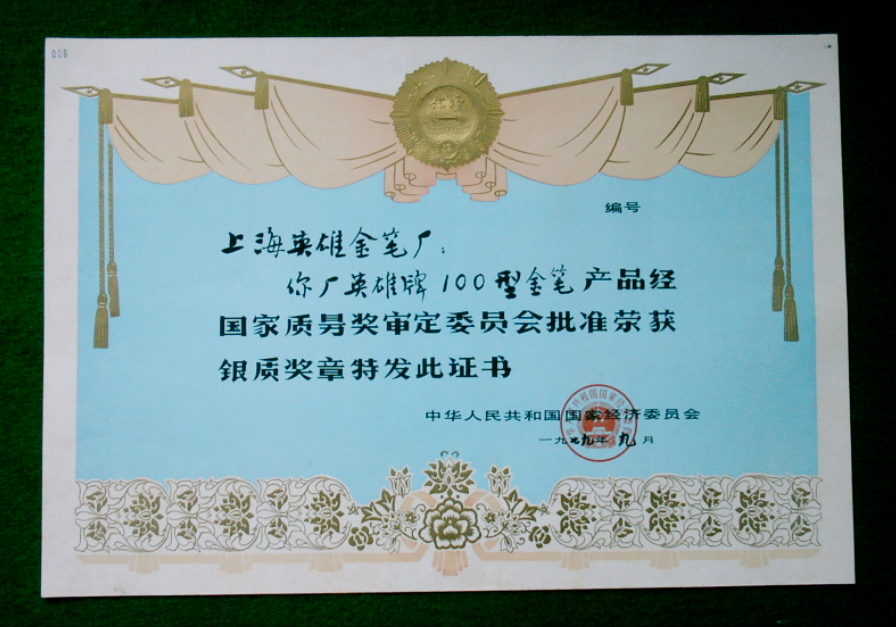 006
编号
上海英雄金笔厂：
你厂英雄牌100型金笔产品经
国家质量奖审定委员会批准荣获
银质奖章特发此证书
中华人民共和国国家经济委员会
一九七九年九月